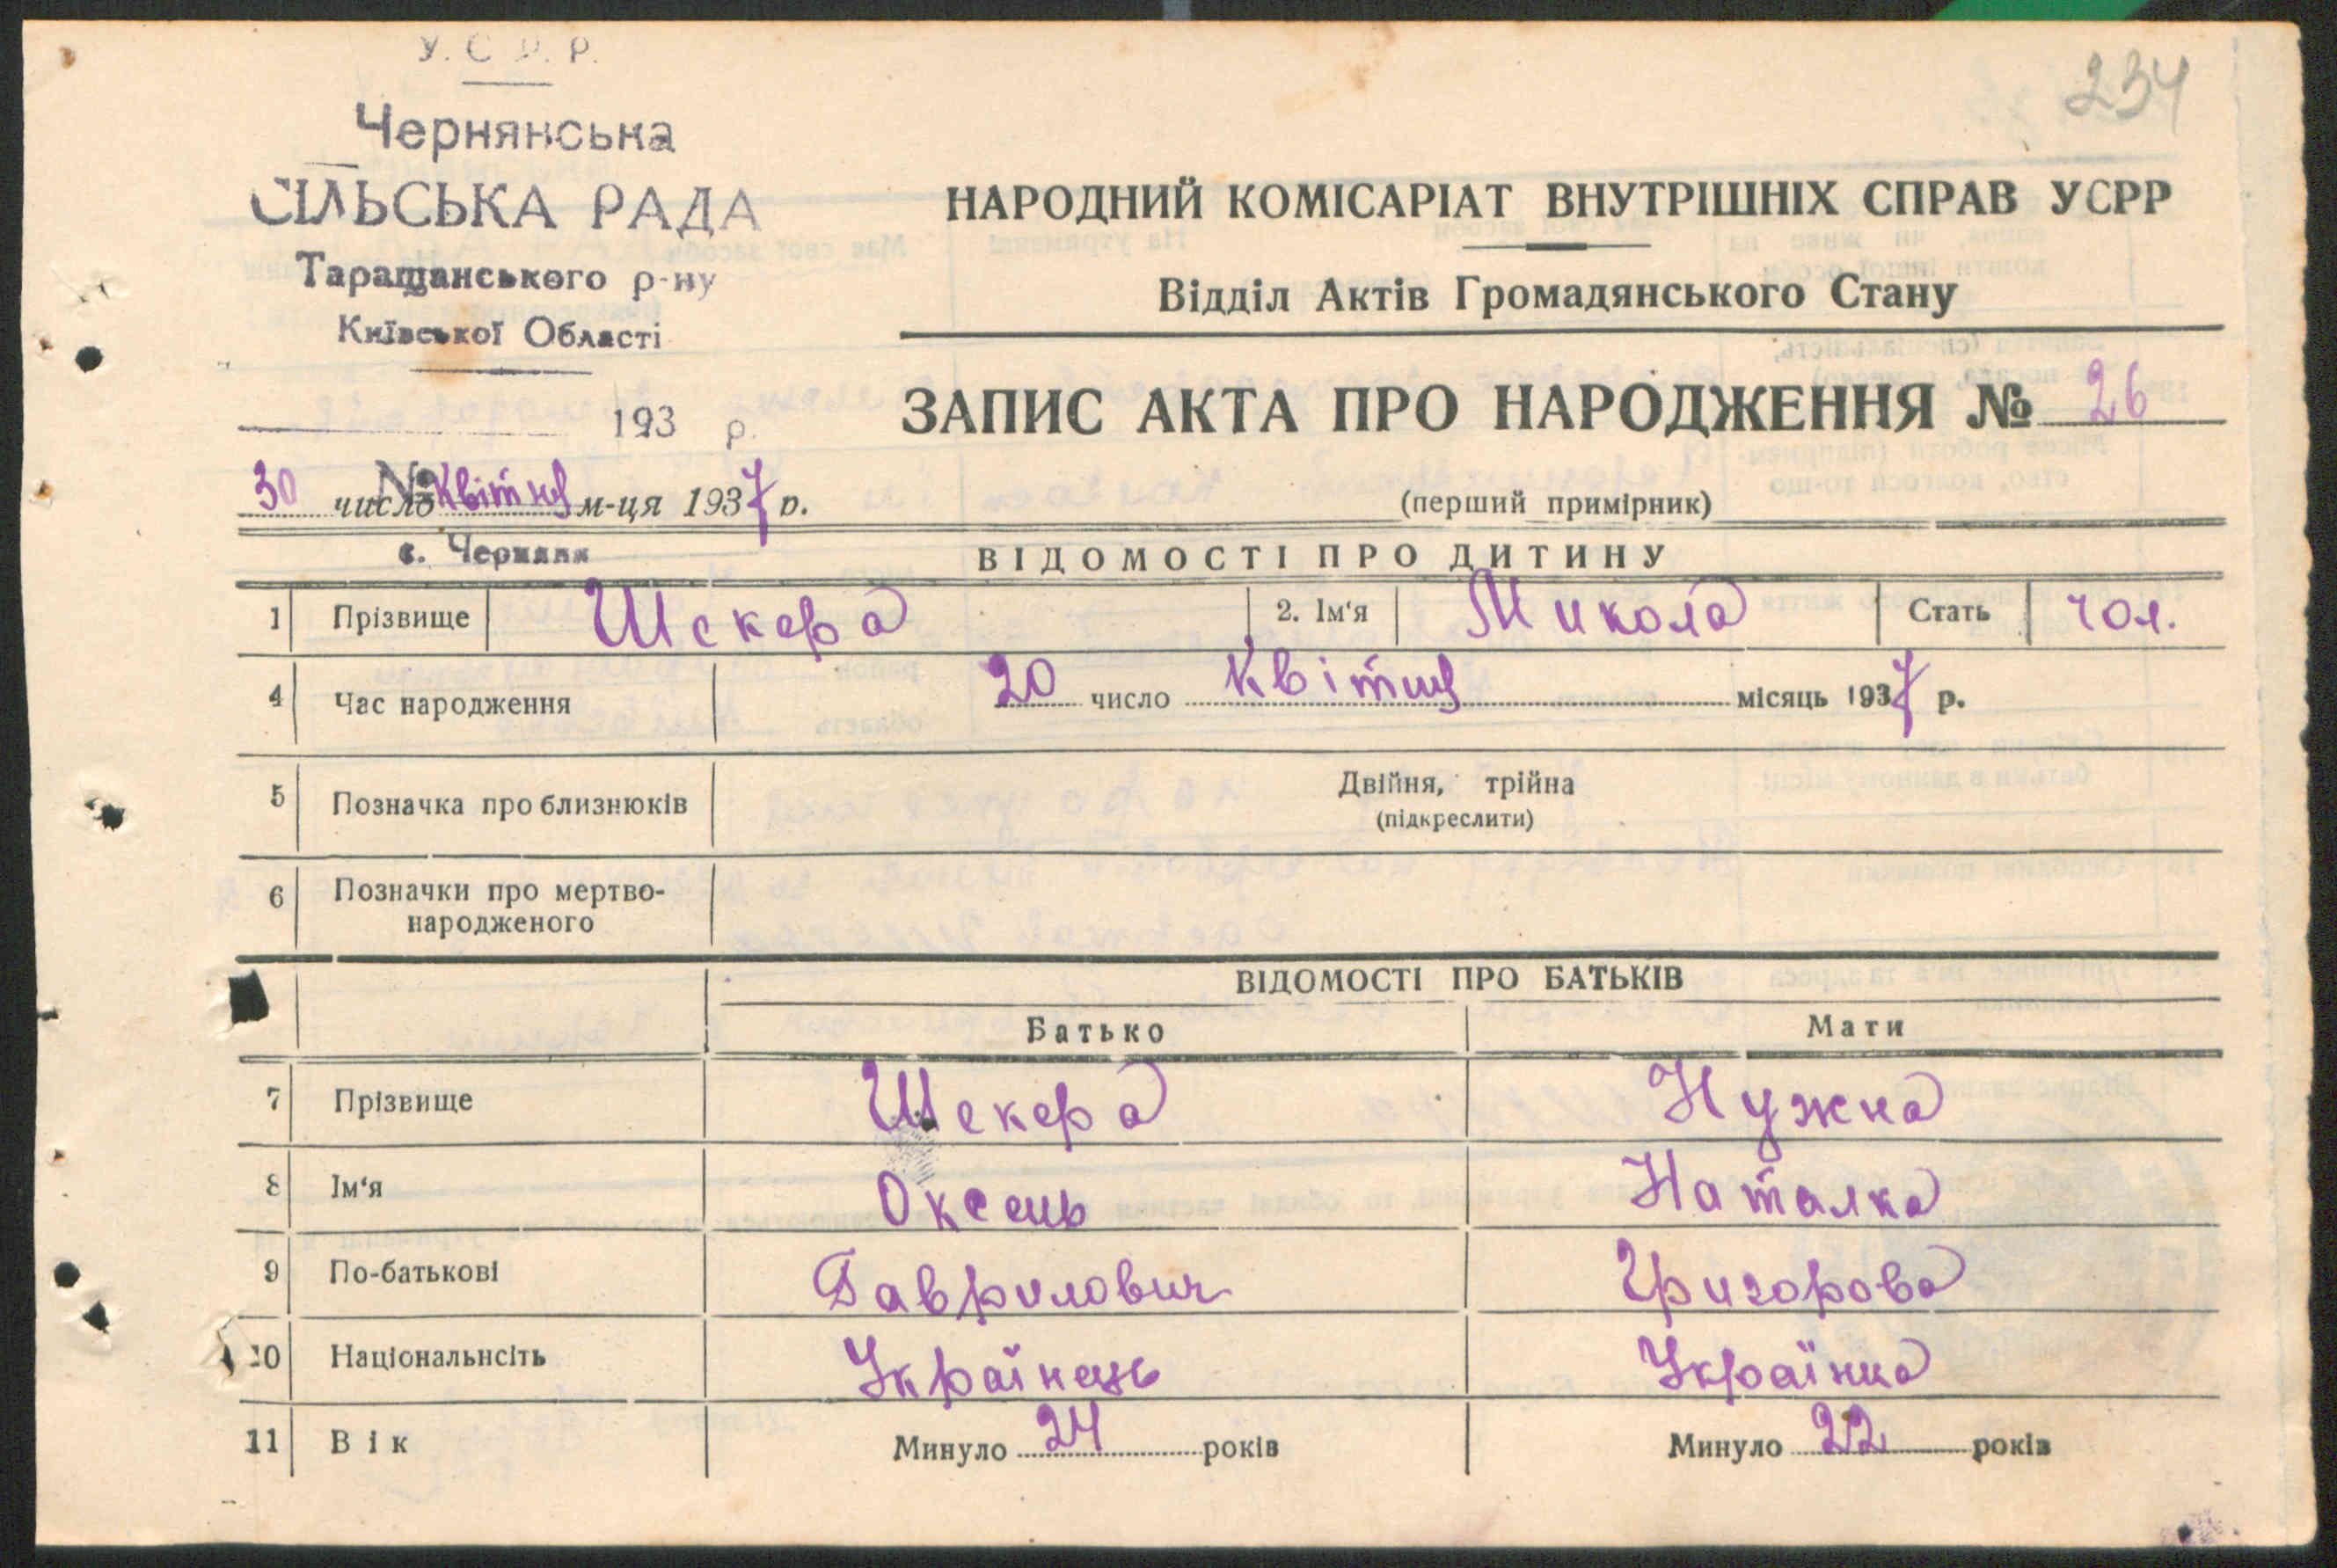 У. С. Р. Р.
234
Чернянська
СІЛЬСЬКА РАДА
Таращанського р-ну
Київської Області
193 р.
№
НАРОДНИЙ КОМІСАРІАТ ВНУТРІШНІХ СПРАВ УСРР
Відділ Актів Громадянського Стану
ЗАПИС АКТА ПРО НАРОДЖЕННЯ № 26
30 число Квітня м-ця 1937 р.
(перший примірник)
с. Чернин
ВІДОМОСТІ ПРО ДИТИНУ
1 Прізвище Шекера 2. Ім'я Микола Стать чол.
4 Час народження 20 число Квітня місяць 1937 р.
5 Позначка про близнюків Двійня, трійна
(підкреслити)
6 Позначки про мертво-
народженого
ВІДОМОСТІ ПРО БАТЬКІВ
Батько Мати
7 Прізвище Шекера Нужна
8 Ім'я Оксень Наталка
9 По-батькові Гаврилович Григорова
10 Національнсіть Українець Українка
11 Вік Минуло 24 років Минуло 22 років